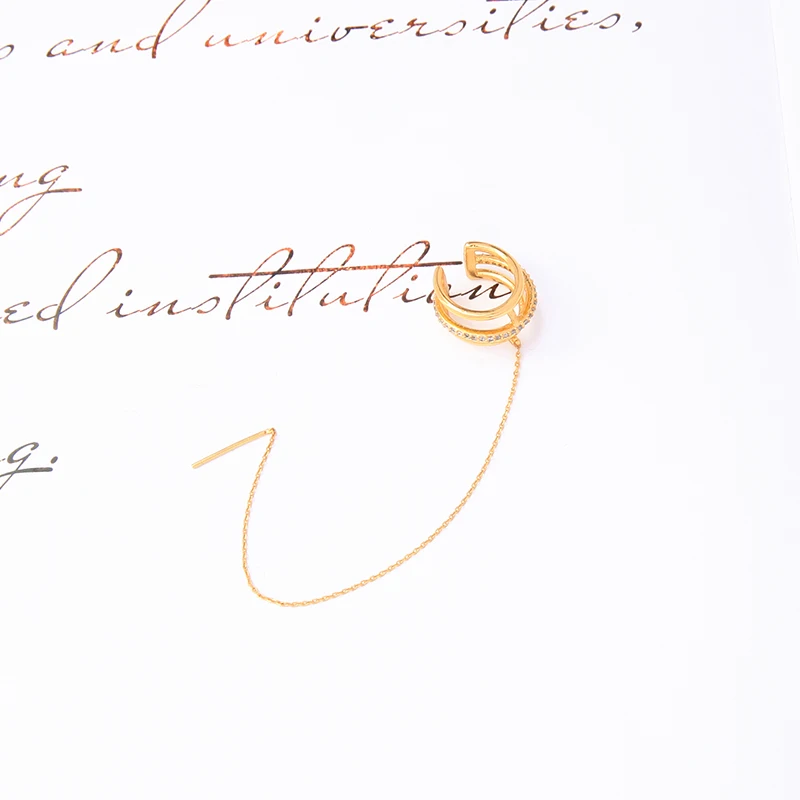 s and universities,
ng
ed institution
g.